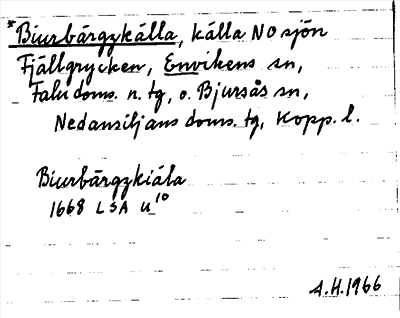 *Biursbärgzkälla, källa NO sjön
Fjällgrycken, Envikens sn,
Falu doms. n. tg, o. Bjursås sn,
Nedansiljans doms. tg, Kopp. l.
Biursbärgzkiäla
1668 LSA U 10
A.H. 1966